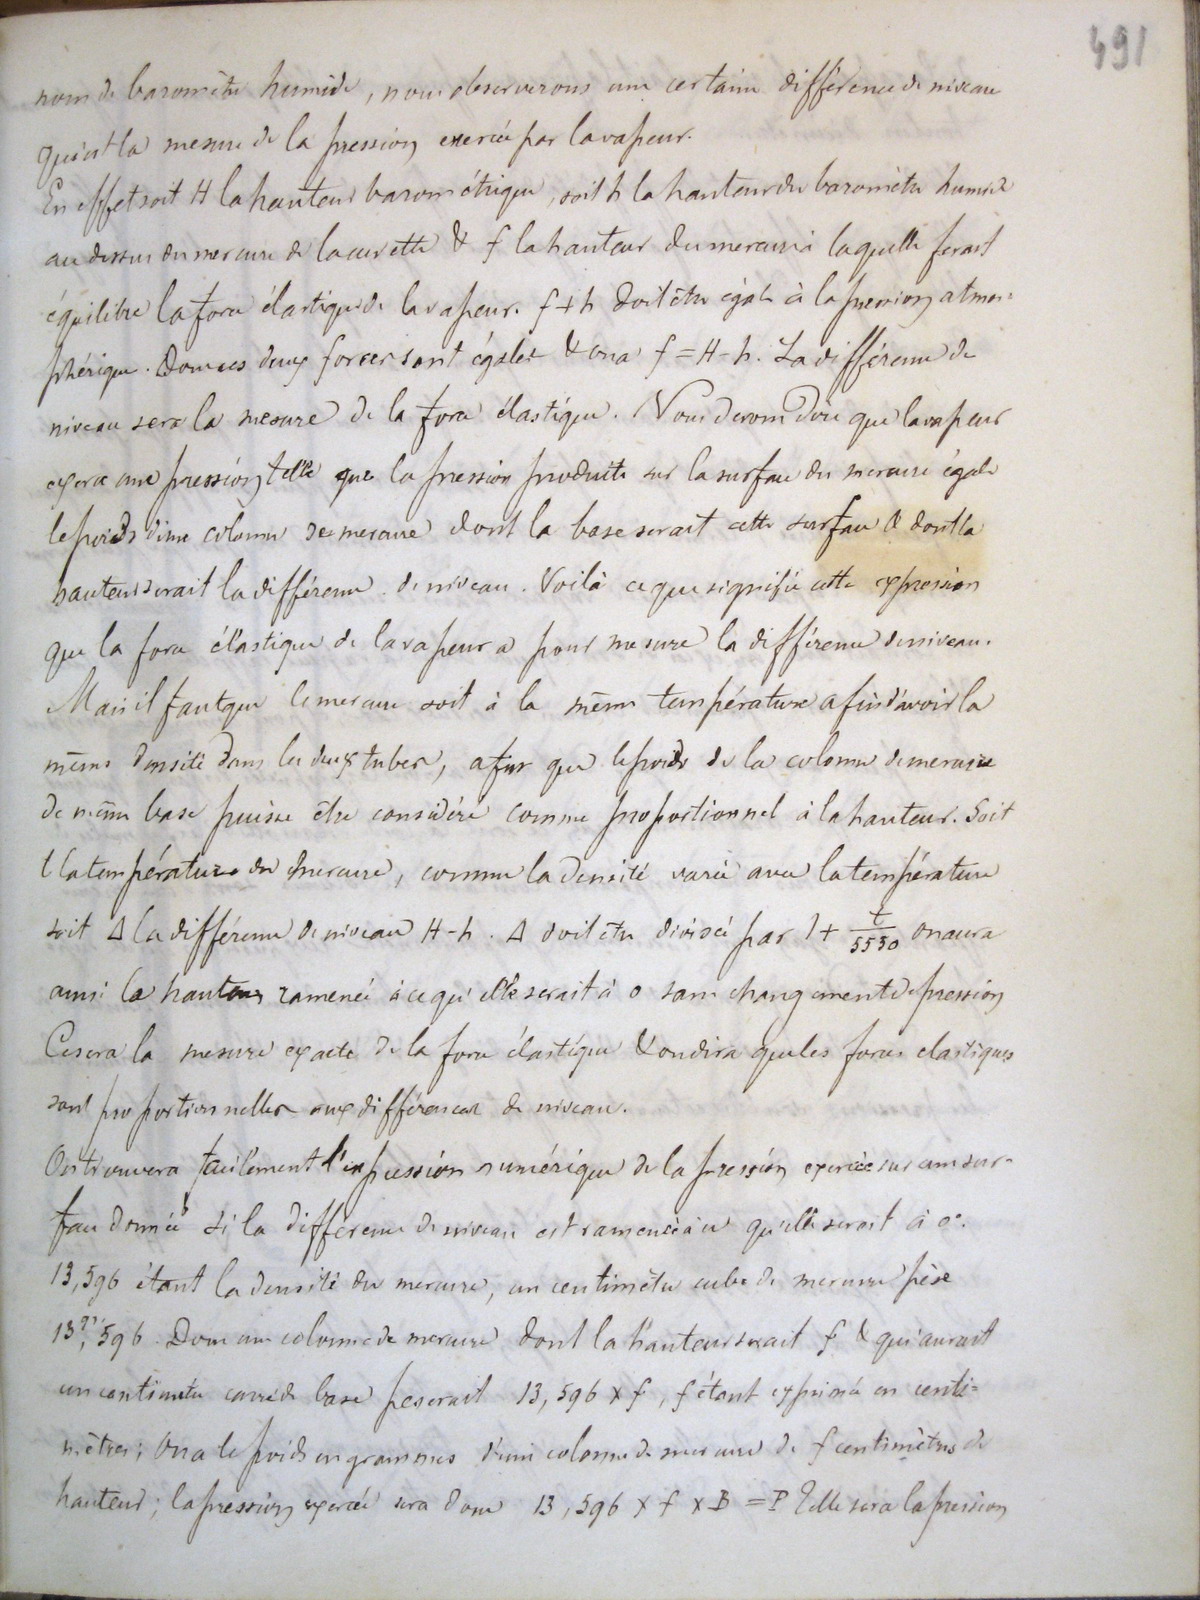 491
nom de baromètre humide, nous observerons une certaine différence de niveau
qui est la mesure de la pression exercée par la vapeur.
En effet soit H la hauteur barométrique, soit h la hauteur du baromètre humide
au dessus du mercure de la cuvette & f la hauteur du mercure à laquelle ferait
équilibre la force élastique de la vapeur. f + h doit être égale à la pression atmos-
phérique. Donc ces deux forces sont égales & on a f = H - h. La différence de
niveau sera la mesure de la force élastique. Nous devons dire que la vapeur
exerce une pression telle que la pression produite sur la surface du mercure égale
le poids d'une colonne de mercure dont la base serait cette surface & dont la
hauteur serait la différence de niveau. Voilà ce que signifie cette expression
que la force élastique de la vapeur a pour mesure la différence de niveau.
Mais il faut que le mercure soit à la même température afin d'avoir la
même densité dans les deux tubes, afin que le poids de la colonne de mercure
de même base puisse être considéré comme proportionnel à la hauteur. Soit
t la température du mercure, comme la densité varie avec la température
soit Δ la différence de niveau H - h. Δ doit être divisée par 1 + t/5550 on aura
ainsi la hauteur ramenée à ce qu'elle serait à 0 sans changement de pression
Ce sera la mesure exacte de la force élastique & on dira que les forces elastiques
sont proportionnelles aux différences de niveau.
On trouvera facilement l'expression numérique de la pression exercée sur une sur-
face donnée si la différence de niveau est ramenée à ce qu'elle serait à 0°.
13,596 étant la densité du mercure, un centimètre cube de mercure pèse
13gr,596. Donc une colonne de mercure dont la hauteur serait f & qui aurait
un centimètre carré de base peserait 13,596 x f, f étant exprimé en centi-
mètres; on a le poids en grammes d'une colonne de mercure de f centimètres de
hauteur; la pression exercée sera donc 13,596 x f x B = P Telle sera la pression